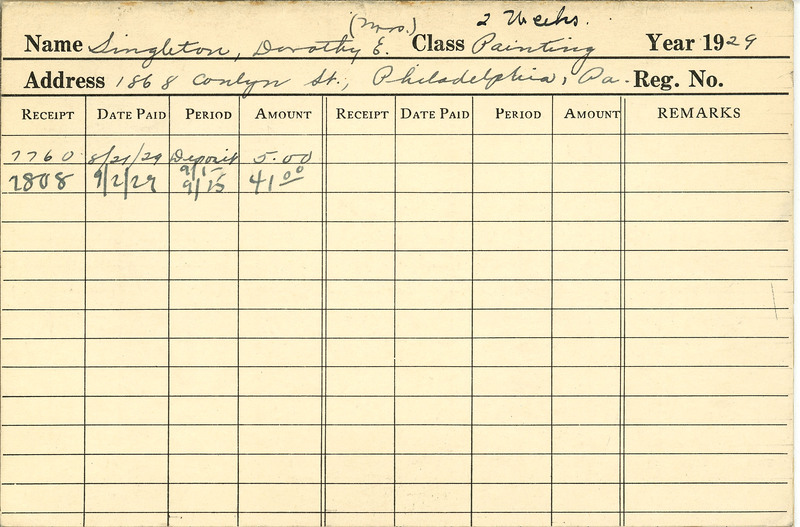 (Mrs.) 2 Weeks.
Name Singleton, Dorothy E. Class Painting Year 1929
Address 1868 Conlyn St., Philadelphia, Pa. Reg. No.
RECEIPT DATE PAID PERIOD AMOUNT RECEIPT DATE PAID PERIOD AMOUNT REMARKS
7760 8/21/29 Deposit 5.00
7808 9/2/29 9/15 41.00